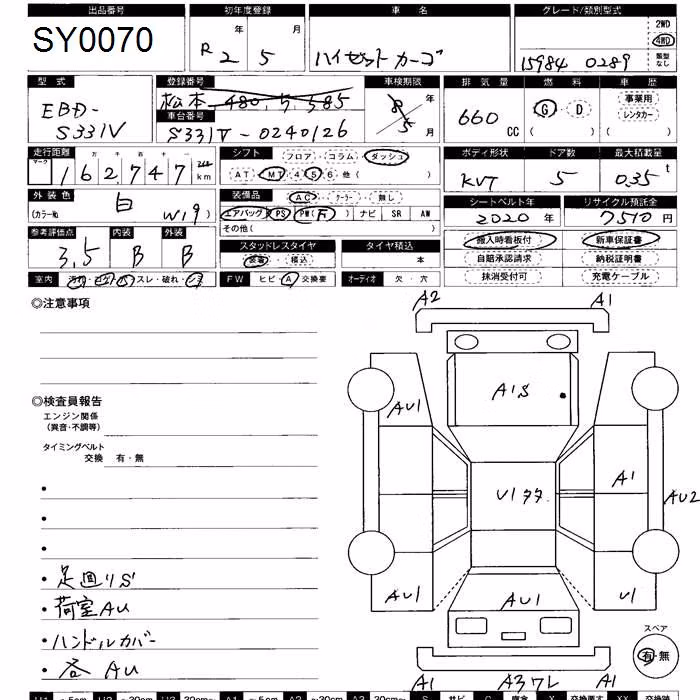 出品番号 初年度登録 車名 グレード/類別型式
SY0070 R 2 年 5 月 ハイゼットカーゴ 15984 0289 2WD 4WD 類型なし
型式 登録番号 車検期限 排気量 燃料 車歴
EBD-S331V 松本 480 年 660 CC G・D 事業用 レンタカー
車台番号
S331V-0240126 5 月
走行距離 シフト ボディ形状 ドア数 最大積載量
マーク 十 万 千 百 十
162747 km フロア・コラム・ダッシュ
AT・MT・4・5・6・他( ) 5 0.35 t
外装色 装備品 シートベルト年 リサイクル預託金
白 AC・クーラー・無し 2020年 7510円
(カラーNo W19) エアバッグ PS PW(F) ナビ SR AW
その他( )
参考評価点 内装 外装 スタッドレスタイヤ タイヤ積込 搬入時看板付 新車保証書
3.5 B B 装着・積込 本 自賠承認請求 納税証明書
室内 スレ・破れ・ FW ヒビ・A・交換要 オーディオ 欠・穴 抹消受付可 充電ケーブル
◎注意事項
A2 A1
◎検査員報告
エンジン関係
(異音・不調等)
タイミングベルト
交換 有・無
A1S
AU1
A1
AU2
AU1
AU1
U1
・足回りS
・荷室AU
・ハンドルカバー
・各AU
スペア
有・無
A1 A1
S サビ X 交換要す XX 交換跡